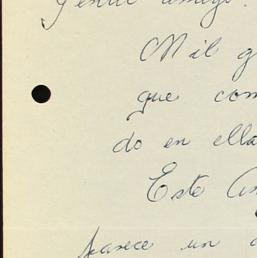 Gentil amigo:
Mil g
que com
do en ella
Este
parece un